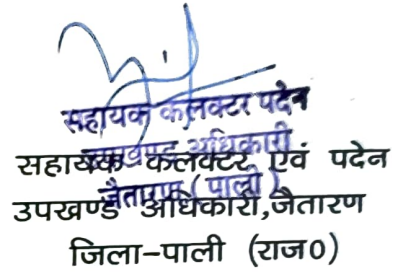 सहायक कलक्टर पदेन
उपखण्ड अधिकारी
सहायक कलक्टर एवं पदेन
जैतारण (पाली)
उपखण्ड अधिकारी,जैतारण
जिला-पाली (राज0)